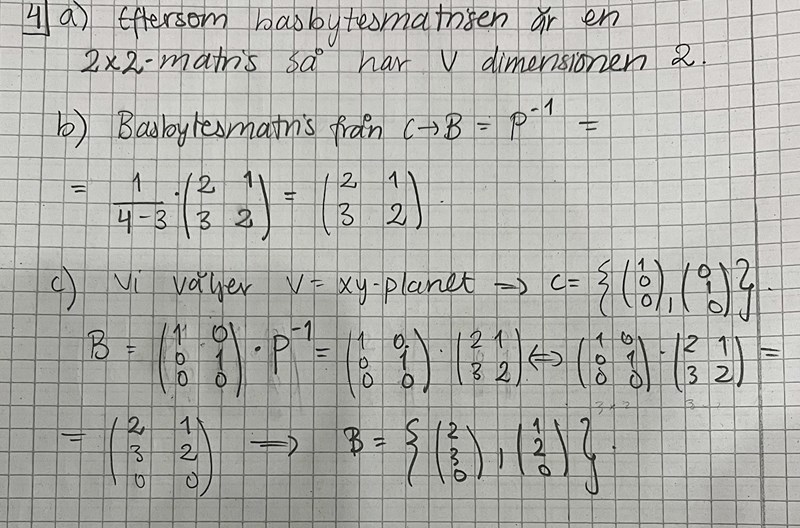 4 a) Eftersom basbytesmatrisen är en
2x2-matris så har V dimensionen 2.
b) Basbytesmatris från C→B = P⁻¹ =
= 1/(4-3) · (2 1; 3 2) = (2 1; 3 2).
c) Vi väljer V = xy-planet → C = {(1; 0; 0), (0; 1; 0)}.
B = (1 0; 0 1; 0 0) · P⁻¹ = (1 0; 0 1; 0 0) · (2 1; 3 2) ⇔ (1 0; 0 1; 0 0) · (2 1; 3 2) =
= (2 1; 3 2; 0 0) ⇒ B = {(2; 3; 0), (1; 2; 0)}.